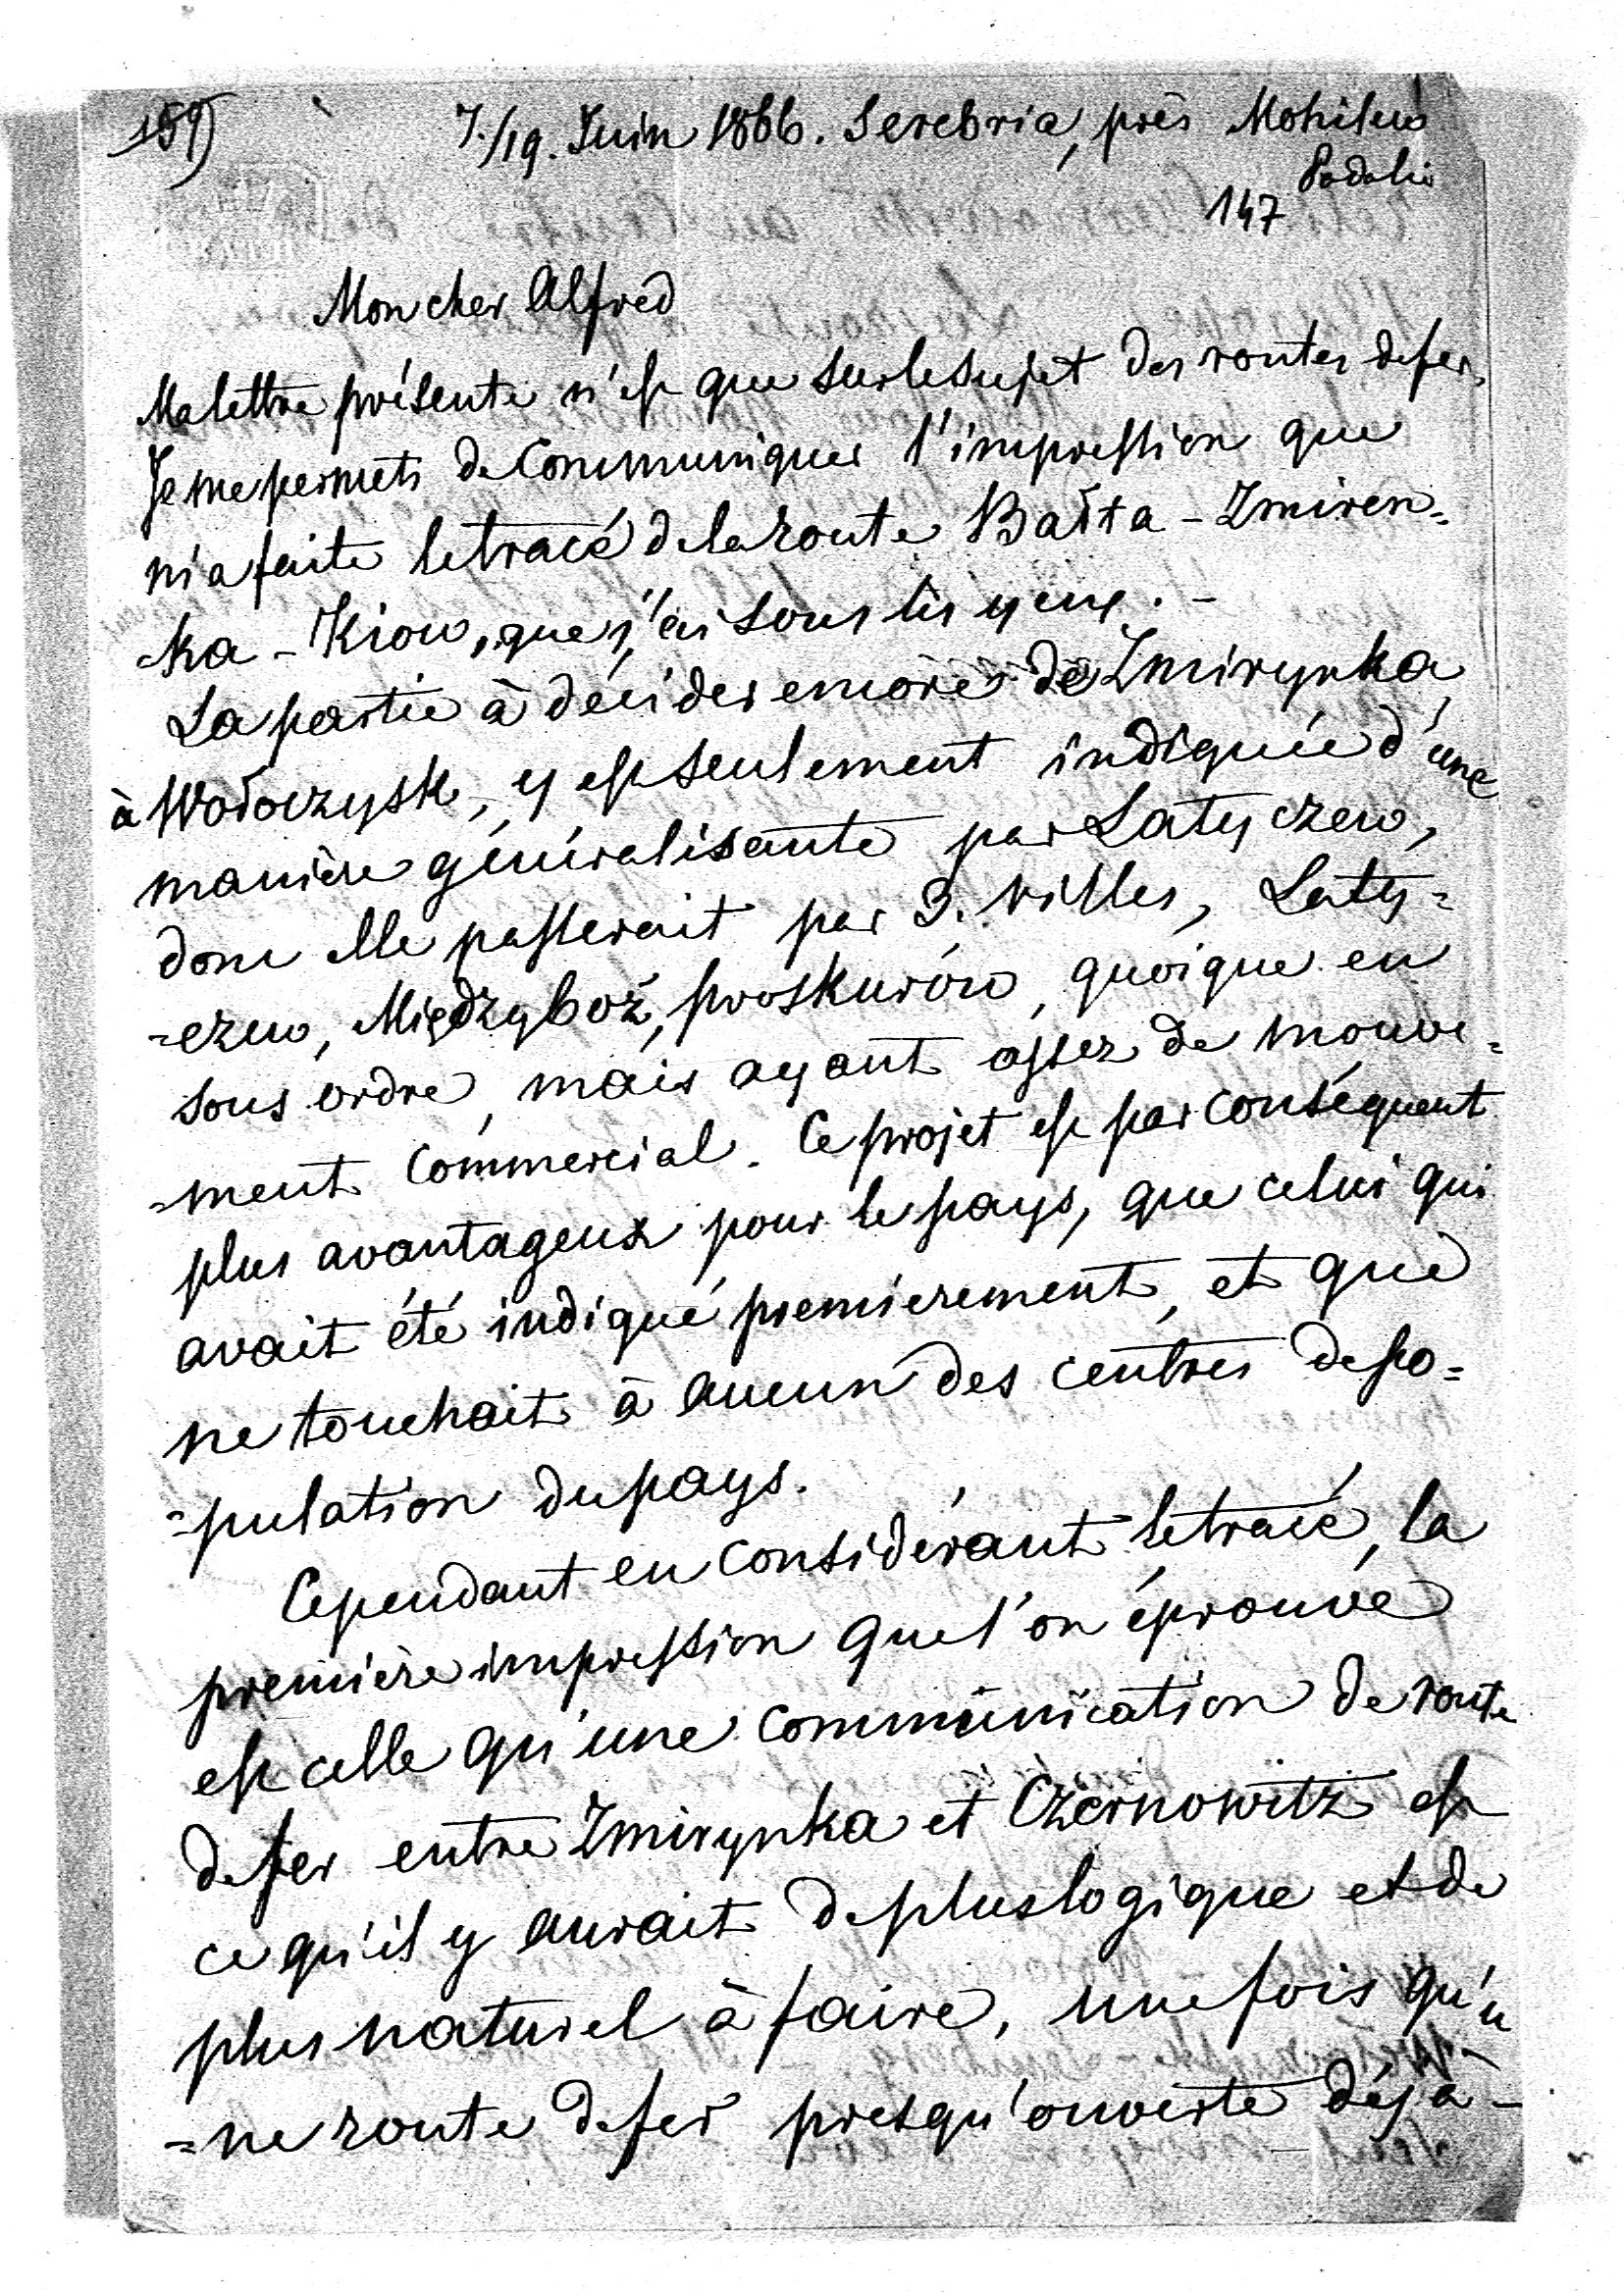 159)
7./19. Juin 1866. Serebria, près Mohilew
Podolie
147
Mon cher Alfred
Ma lettre présente n'est que sur le sujet des routes de fer.
Je me permets de Communiquer l'impression que
m'a faite le tracé de la route Bałta - Zmiren=
-ka - Kiow, que j'ai sous les yeux. -
La partie à décider encore de Zmirynka
à Wołoczysk, y est seulement indiquée d'une
manière généralisante par Latyczew,
donc elle passerait par 3. villes, Laty=
=czew, Międzyboż, proskurów, quoique en
sous ordre, mais ayant assez de mouve=
=ment Commercial. Ce projet est par conséquent
plus avantageux pour le pays, que celui qui
avait été indiqué premierement, et qui
ne touchait à aucun des centres de po=
=pulation du pays.
Cependant en considérant le tracé, la
première impression que l'on éprouve
est celle qu'une communication de route
de fer entre Zmirynka et Czernowitz est
ce qu'il y aurait de plus logique et de
plus naturel à faire, une fois qu'u
=ne route de fer presqu'ouverte déjà -